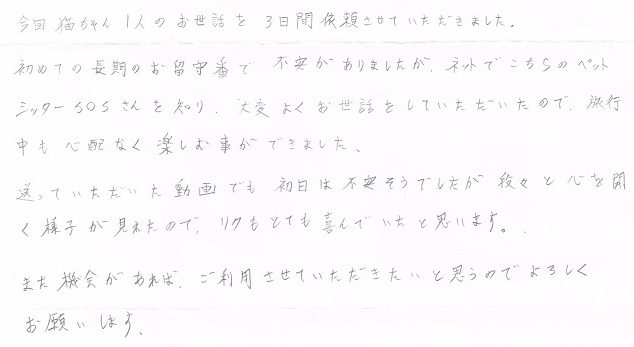 今回 猫ちゃん 1人のお世話を 3日間 依頼させていただきました。
初めての長期のお留守番で 不安がありましたが、ネットでこちらのペット
シッターSOSさんを知り、大変よくお世話をしていただいたので、旅行
中も心配なく楽しむ事ができました、
送っていただいた動画でも 初日は不安そうでしたが 段々と心を開
く様子が見れたので、リクもとても喜んでいたと思います。
また機会があれば、ご利用させていただきたいと思うのでよろしく
お願いします、